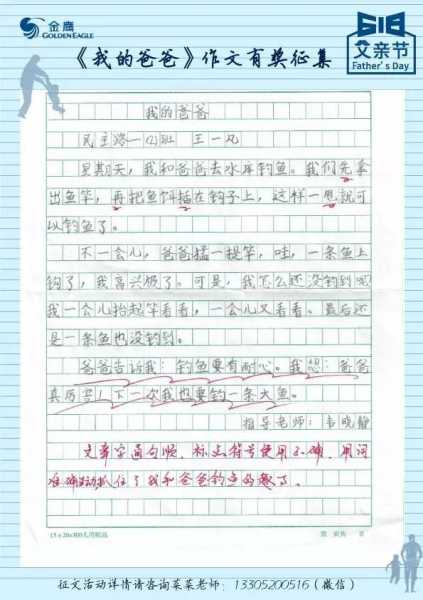 金鹰
GOLDEN EAGLE
618
父亲节
Father's Day
《我的爸爸》作文有奖征集
我的爸爸
民主路一(2)班 王一凡
星期天，我和爸爸去水库钓鱼。我们先拿
出鱼竿，再把鱼饵插在钩子上，这样一甩就可
以钓鱼了。
不一会儿，爸爸猛一提竿，哇，一条鱼上
钩了，我高兴极了。可是，我怎么还没钓到呢
我一会儿抬起竿看看，一会儿又看看。最后还
是一条鱼也没钓到。
爸爸告诉我：钓鱼要有耐心。我想：爸爸
真厉害！下一次我也要钓一条大鱼。
指导老师：韦晓静
文章字通句顺，标点符号使用正确，用词
准确，抓住了我和爸爸钓鱼的趣了。
15×20=300
征文活动详情请咨询菜菜老师：13305200516（微信）